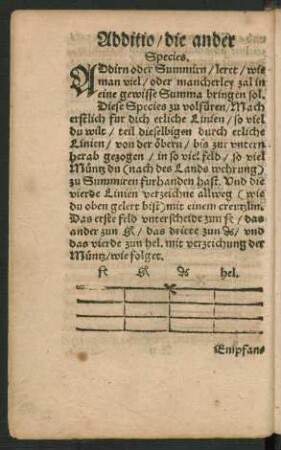 Additio/die ander
Species.
ADdirn oder Summirn/leret/wie
man viel/oder mancherley zal in
eine gewisse Summa bringen sol.
Diese Species zu volfüren/Mach
erstlich für dich etliche Linien/so viel
du wilt/teil dieselbigen durch etliche
Linien/von der öbern/bis zur vntern
herab gezogen/in so viel feld/so viel
Müntz du (nach des Lands wehrung)
zu Summiren fürhanden hast. Vnd die
vierde Linien verzeichne allweg (wie
du oben gelert bist) mit einem creutzlin.
Das erste feld vnterscheide zum fl/das
ander zum gl/das dritte zum d/vnd
das vierde zum hel. mit verzeichung der
Müntz/wie folget.
fl gl d hel.
Empfans